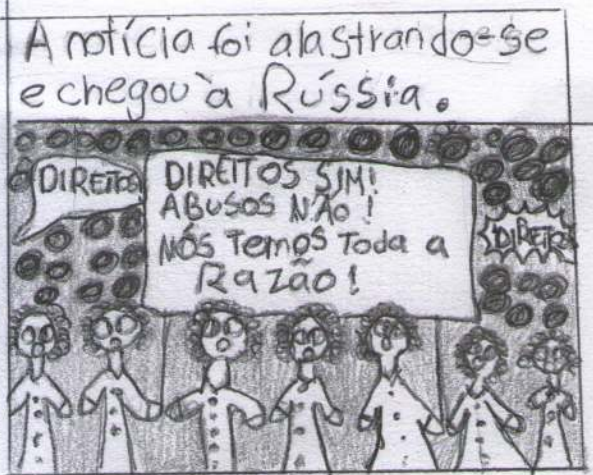 A notícia foi alastrando-se
e chegou à Rússia.
DIREITOS
DIREITOS SIM!
ABUSOS NÃO!
NÓS Temos Toda a
Razão!